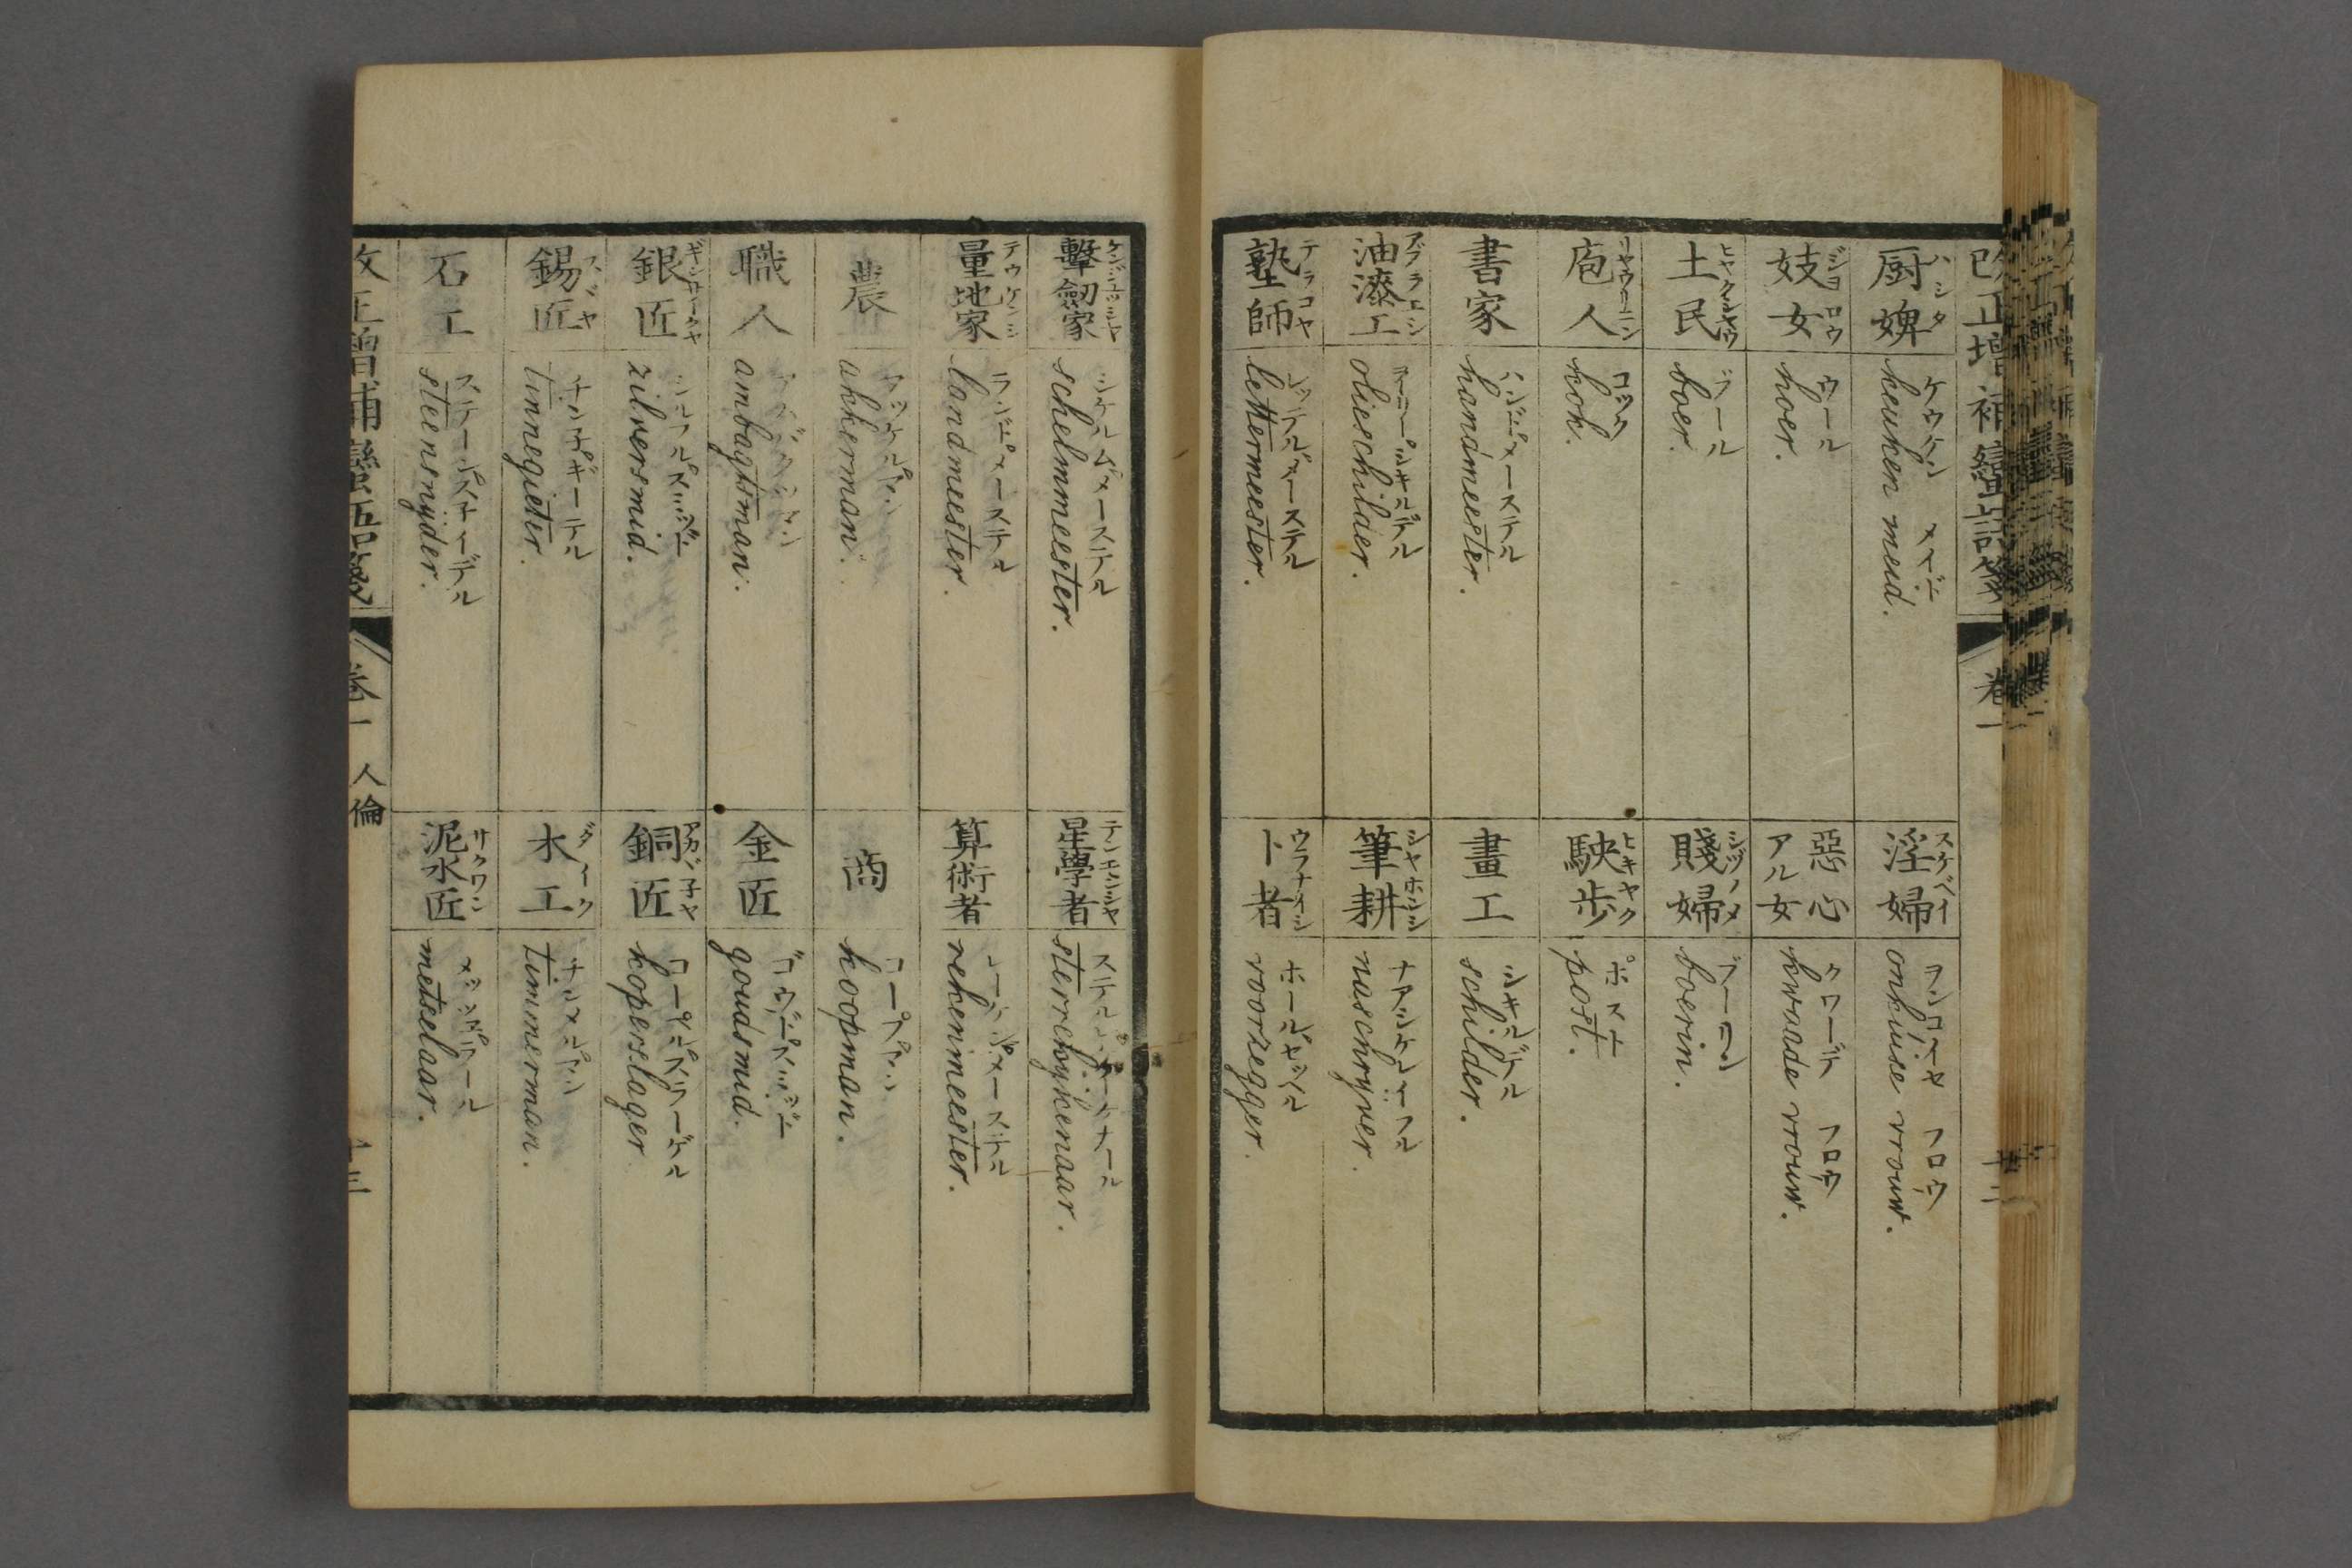 改正增補蠻語箋 卷一
厨婢 ハシタ
ケウケン メイド
keuken meid.
淫婦 スケベイ
ヲンコイセ フロウ
onkuise vrouw.
妓女 ジョロウ
ウール
hoer.
惡心アル女
クワーデ フロウ
kwaade vrouw.
土民 ヒャクシャウ
ブール
boer.
賤婦 シヅノメ
ブーリン
boerin.
庖人 リャウリニン
コック
kok.
駚步 ヒキャク
ポスト
post.
書家
ハンドメーステル
handmeester.
畫工
シキルデル
schilder.
油漆工 アブラエシ
ヲーリーシキルデル
olieschilder.
筆耕 シャホンシ
naschryver.
塾師 テラコヤ
レッテルメーステル
lettermeester.
卜者 ウラナイシ
ホールセッヘル
voorzegger.
擊劒家 ケンジュッシャ
シケルムメーステル
schelmmeester.
星學者 テンモンシャ
sterrekykenaar.
量地家 テウケンシ
ランドメーステル
landmeester.
算術者
レーケンメーステル
rekenmeester.
農
アッケルマン
akkerman.
商
コープマン
koopman.
職人
アムバグトマン
ambagtman.
金匠
ゴウドスミッド
goudsmid.
銀匠 ギンサイクヤ
シルフルスミッド
zilversmid.
銅匠 アカヾ子ヤ
コープルスラーゲル
koperslager
錫匠 スヾヤ
チン子ギーテル
tinnegieter.
木工 ダイク
チンメルマン
timmerman.
石工
ステーンスネイデル
steensnyder.
泥水匠 サクワン
メッツラール
metselaar.
改正增補蠻語箋 卷一 人倫 十三